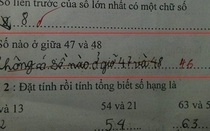 Số liền trước của số lớn nhất có một chữ số
8
Số nào ở giữa 47 và 48
không có số nào ở giữ 47 và 48
2 : Đặt tính rồi tính tổng biết số hạng là
và 13 54 và 21 63 và
2 54 63